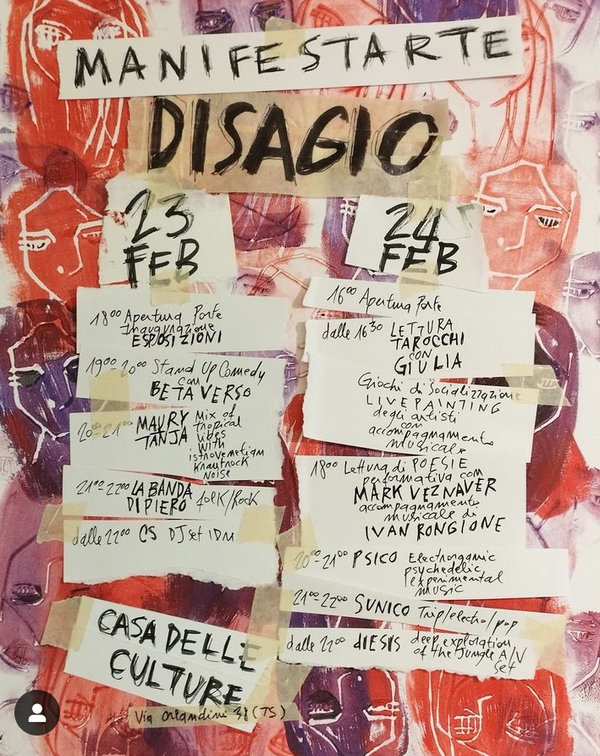 MANIFESTARTE
DISAGIO
23
FEB
18⁰⁰ Apertura Porte
Inaugurazione
ESPOSIZIONI
19⁰⁰-20⁰⁰ Stand Up Comedy
con
BETA VERSO
20⁰⁰-21⁰⁰ MAURY
TANJA
Mix of
tropical
vibes
with
istrovenetian
krautrock
noise
21⁰⁰-22⁰⁰ LA BANDA
DI PIERO
folk/Rock
dalle 22⁰⁰ CS DJ set IDM
24
FEB
16⁰⁰ Apertura Porte
dalle 16³⁰ LETTURA
TAROCCHI
con
GIULIA
Giochi di Socializzazione
LIVEPAINTING
degli artisti
con
accompagnamento
musicale
18⁰⁰ Lettura di POESIE
performativa con
MARK VEZNAVER
accompagnamento
musicale di
IVAN RONGIONE
20⁰⁰-21⁰⁰ PSICO Electrorganic
psychedelic
experimental
music
21⁰⁰-22⁰⁰ SUNICO Trip/electro/pop
dalle 22⁰⁰ dIESIS deep exploration
of the Jungle A/V
Set
CASA DELLE
CULTURE
Via Orlandini 38 (TS)